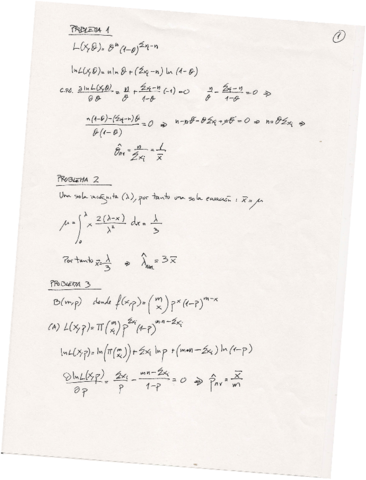 PROBLEMA 1
①
L(x,θ) = θⁿ (1-θ)^(Σxi-n)
lnL(x,θ) = n ln θ + (Σxi-n) ln (1-θ)
c.p.o. ∂lnL(x,θ)/∂θ = n/θ + (Σxi-n)/(1-θ) (-1) = 0   n/θ - (Σxi-n)/(1-θ) = 0 ⇒
(n(1-θ)-(Σxi-n)θ)/(θ(1-θ)) = 0 ⇒ n-nθ-θΣxi+nθ = 0 ⇒ n = θΣxi ⇒
θ̂mv = n/Σxi = 1/x̄
PROBLEMA 2
Una sola incógnita (λ), por tanto una sola ecuación: x̄ = μ
μ = ∫₀^λ x 2(λ-x)/λ² dx = λ/3
Por tanto x̄ = λ/3 ⇒ λ̂mm = 3x̄
PROBLEMA 3
B(m,p) donde f(x,p) = (m x) pˣ (1-p)^(m-x)
(A) L(x,p) = Π(m xi) p^(Σxi) (1-p)^(mn-Σxi)
lnL(x,p) = ln(Π(m xi)) + Σxi ln p + (mn-Σxi) ln(1-p)
∂lnL(x,p)/∂p = Σxi/p - (mn-Σxi)/(1-p) = 0 ⇒ p̂mv = x̄/m